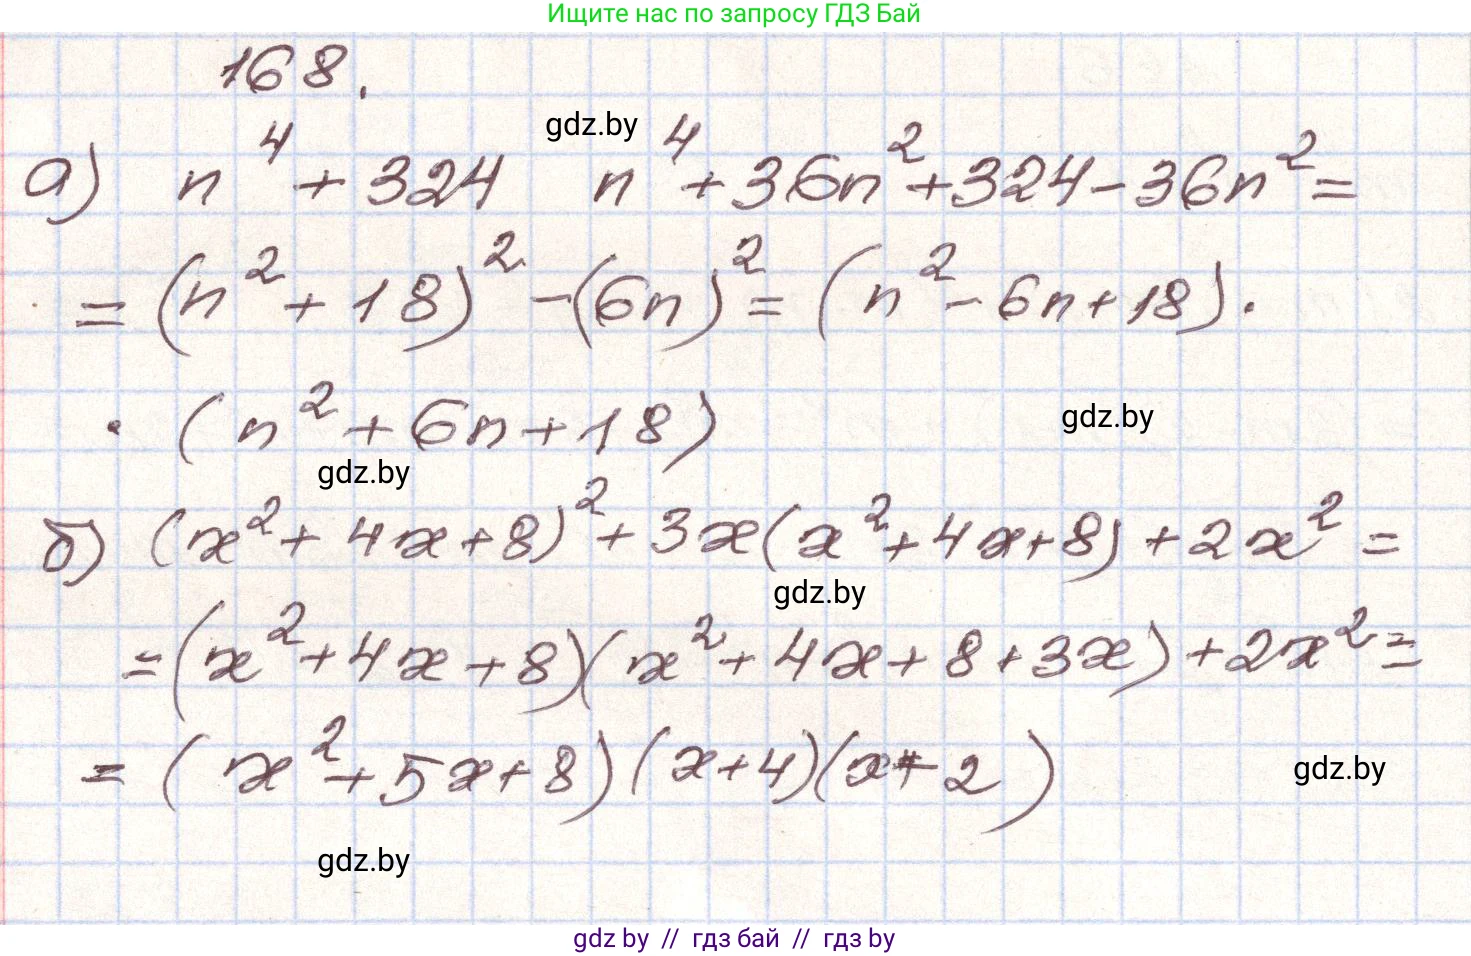 Ищите нас по запросу ГДЗ Бай
168.
gdz.by
а) n⁴ + 324 n⁴ + 36n² + 324 - 36n² =
= (n² + 18)² - (6n)² = (n² - 6n + 18) ·
· (n² + 6n + 18)
gdz.by
gdz.by
б) (x² + 4x + 8)² + 3x(x² + 4x + 8) + 2x² =
gdz.by
= (x² + 4x + 8)(x² + 4x + 8 + 3x) + 2x² =
= (x² + 5x + 8)(x + 4)(x + 2)
gdz.by
gdz.by
gdz by // гдз бай // гдз by